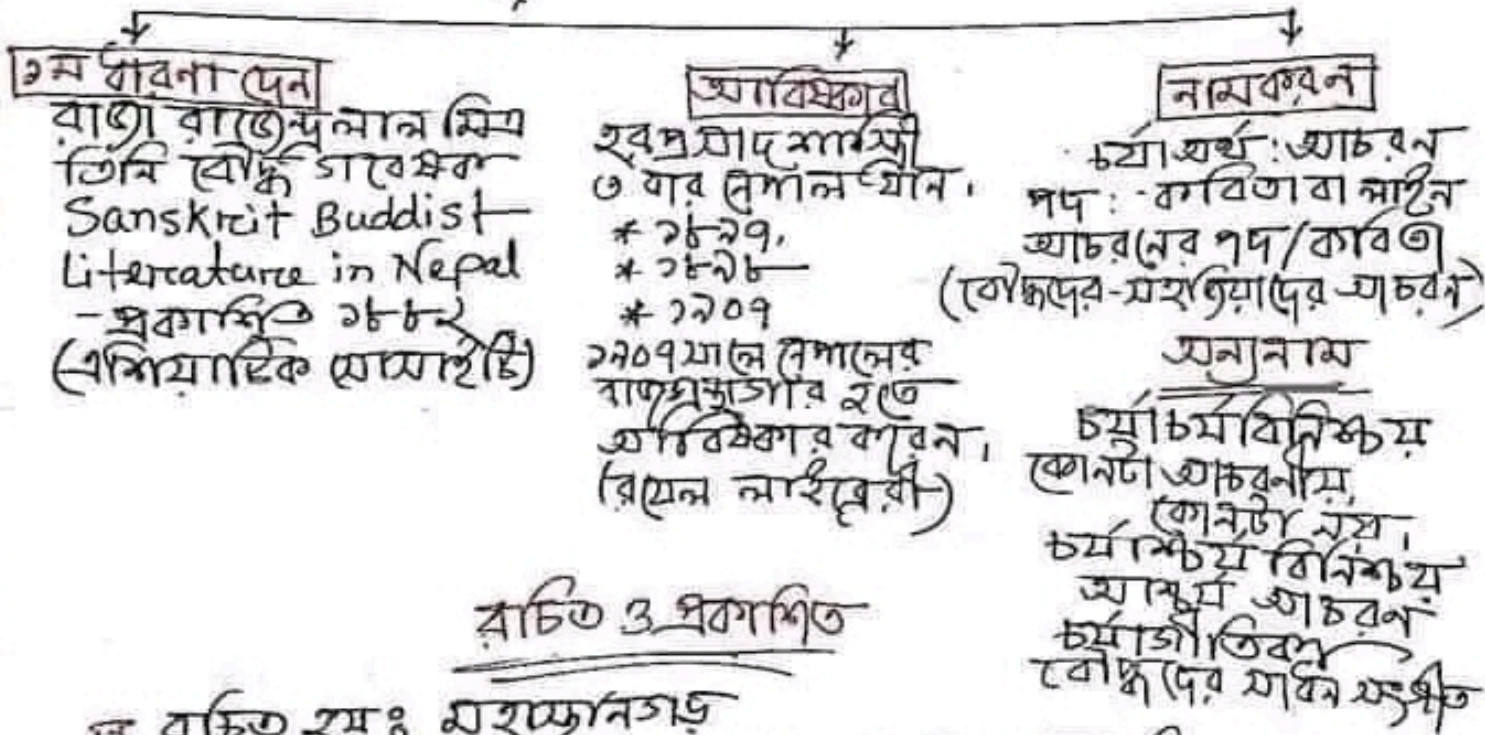 ১ম ধারনা দেন
রাজা রাজেন্দ্রলাল মিত্র
তিনি বৌদ্ধ গবেষক
Sanskrit Buddist
Literature in Nepal
- প্রকাশিত ১৮৮২
(এশিয়াটিক সোসাইটি)
আবিষ্কার
হরপ্রসাদ শাস্ত্রী
৩ বার নেপাল যান।
* ১৮৯৭,
* ১৮৯৮
* ১৯০৭
১৯০৭ সালে নেপালের
রাজগ্রন্থাগার হতে
আবিষ্কার করেন।
(রয়েল লাইব্রেরী)
নামকরন
চর্যা অর্থ : আচরন
পদ : কবিতা বা লাইন
আচরনের পদ/কবিতা
(বৌদ্ধদের-সহজিয়াদের আচরন)
অন্যনাম
চর্যাচর্যবিনিশ্চয়
কোনটা আচরনীয়,
কোনটা নয়।
চর্যাশ্চর্য বিনিশ্চয়
আশ্চর্য আচরন
চর্যাগীতিকা
বৌদ্ধদের সাধন সংগীত
রচিত ও প্রকাশিত
রচিত হয় : মহাস্থানগড়